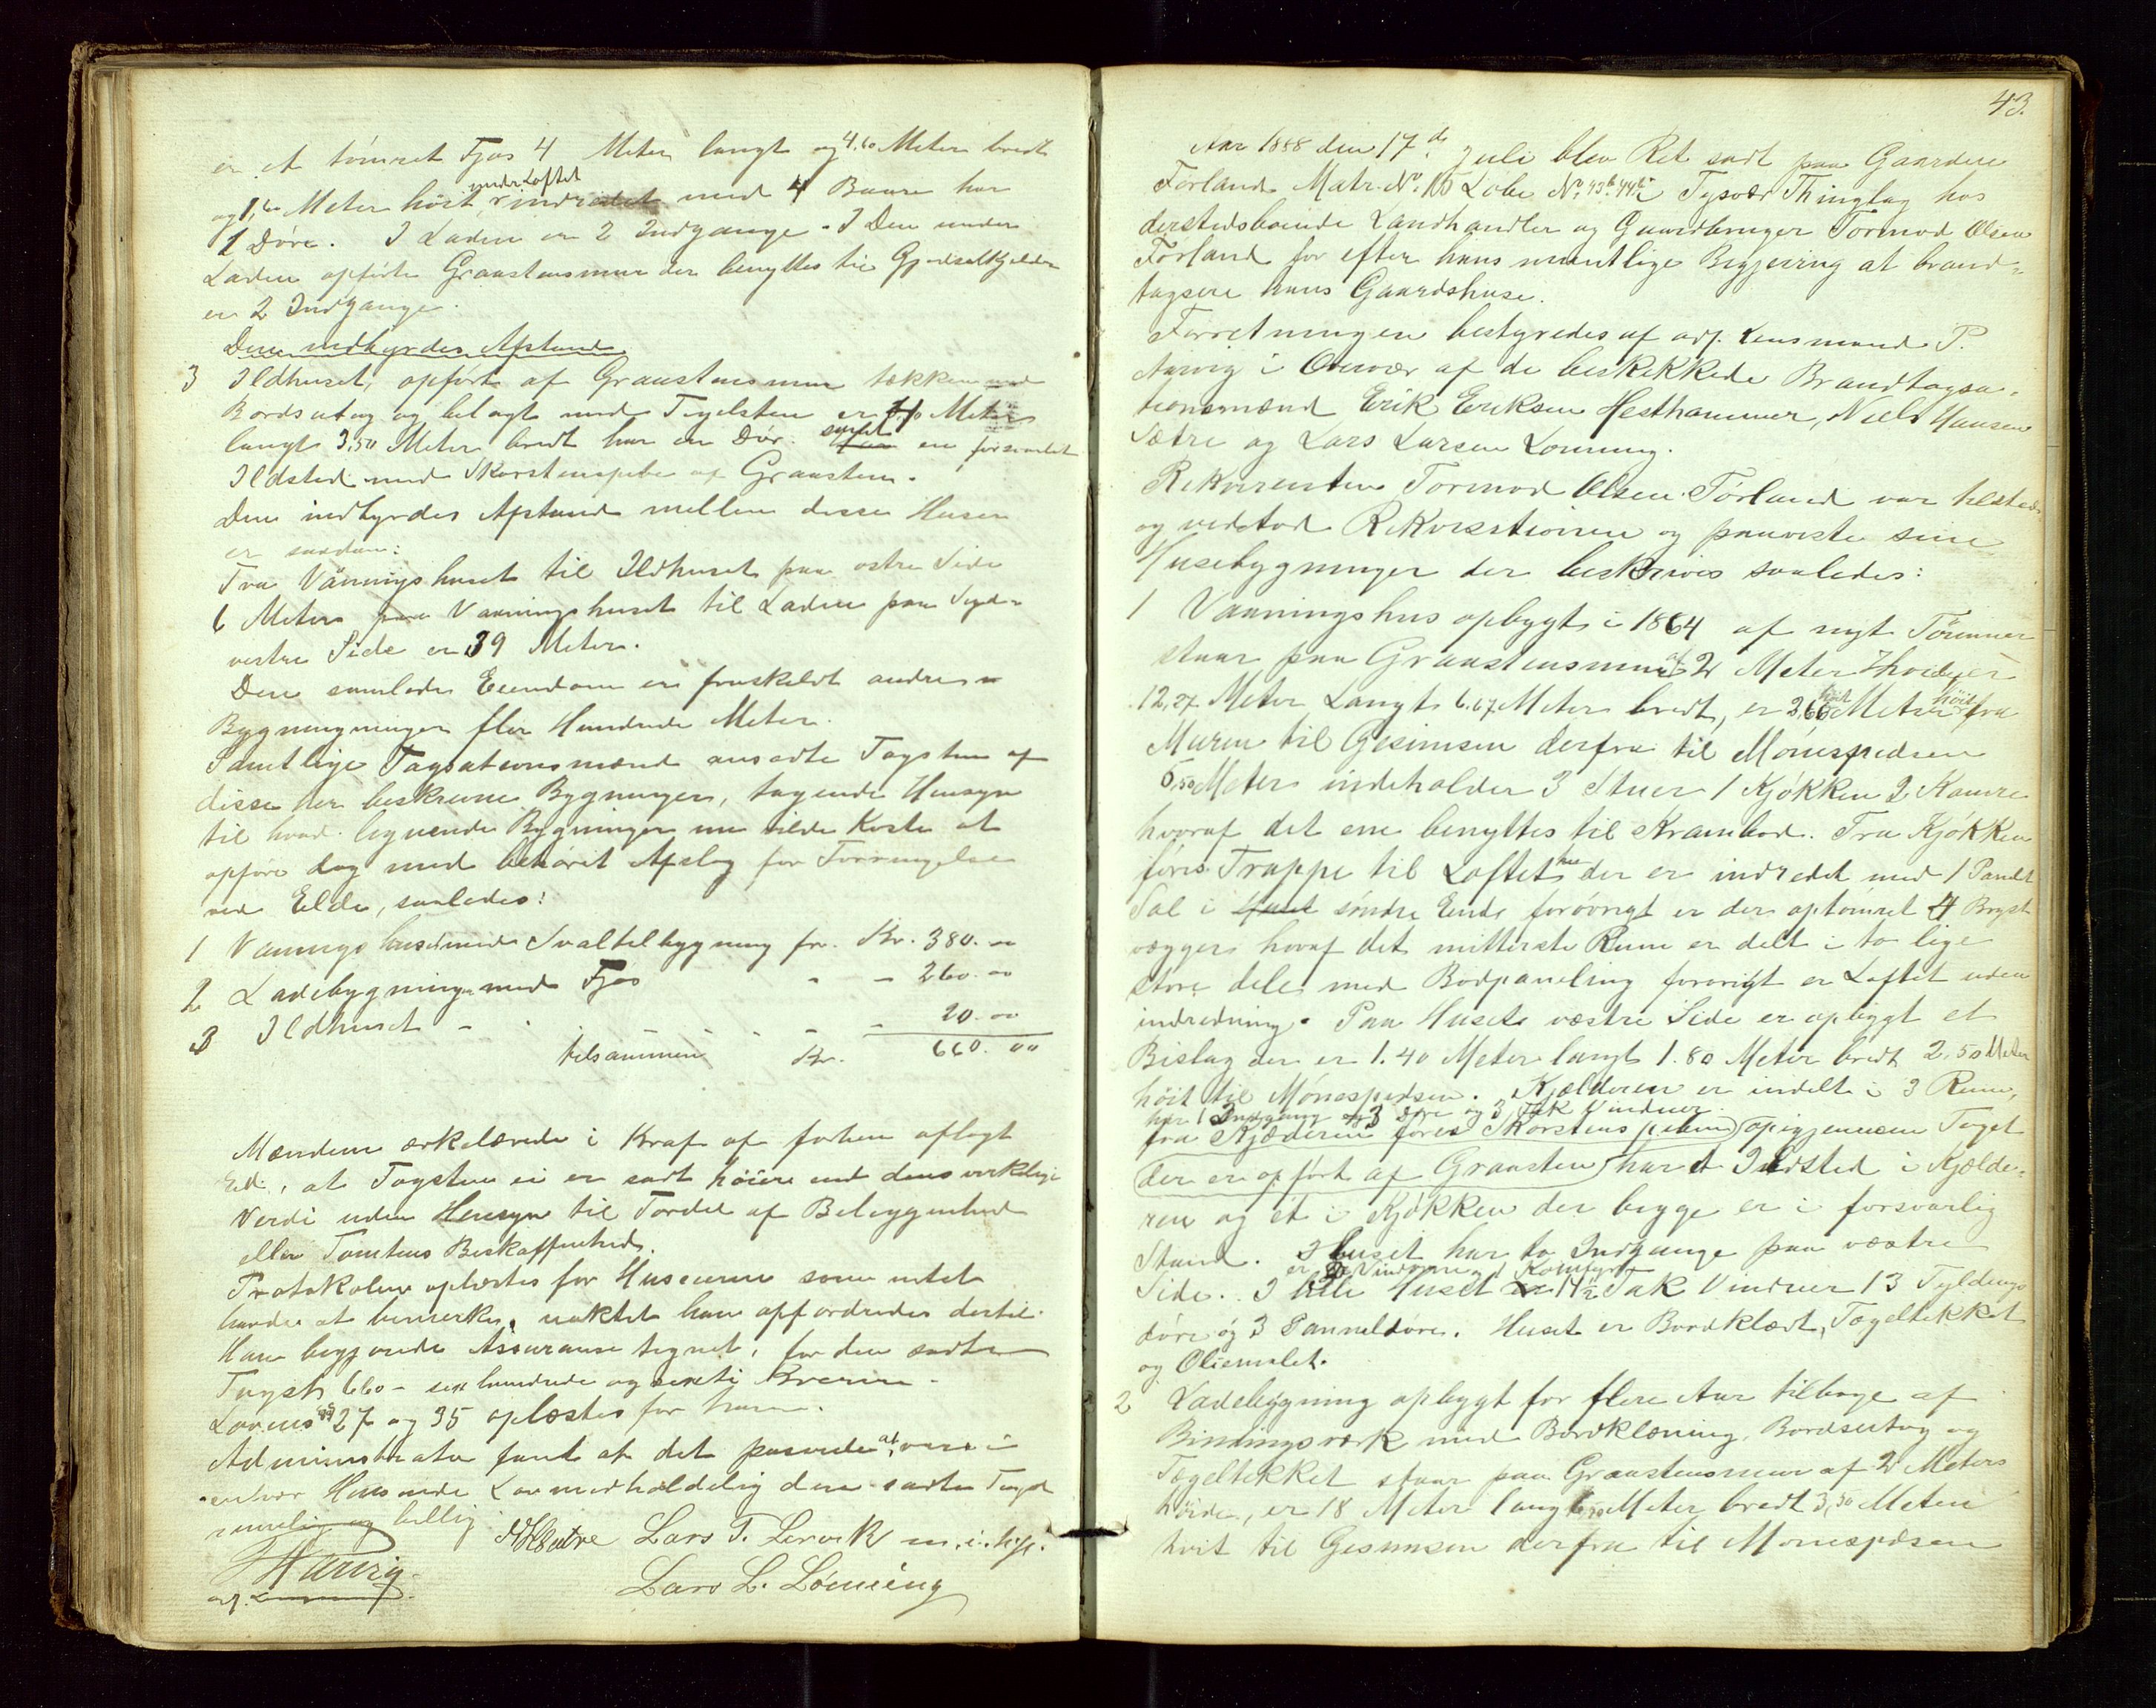 er et tømret Fjøs 4 Meter langt og 4.60 Meter bredt
og 1,60 Meter høit under Loftet indredet med 4 Baase har
1 Døre. I Laden er 2 Indgange. I Den under
Laden opførte Graastensmur der benyttes til Gjødselkjelder
er 2 Indgange.
Den indbyrdes Afstand
3 Ildhuset, opført af Graastensmur tækken med
Bordsutag og belagt med Tegelsten er Meter
langt 3,50 Meter bredt har en Dør. samt en forsvarlet
Ildsted med Skorstenspibe af Graasten.
Den indbyrdes Afstand mellem disse Huse
er saadan:
Fra Vaaningshuset til Ildhuset paa østre Side
6 Meter fra Vaaningshuset til Laden paa Syd-
vestre Side er 39 Meter.
Den samlede Eiendom er fraskildt andres
Bygningninger flere Hundrede Meter.
Samtlige Tagsationsmænd ansadte Tagsten af
disse her beskrevne Bygninger, tagende Hensyn
til hvad lignende Bygninger nu vilde Koste at
opføre dog med behørit Afslag for Forringelse
ved Elde, saaledes:
1 Vaanings huset med Svaltilbygning for Kr. 380.00
2 Ladebygningen med Fjøs - - 260.00
3 Ildhuset - - - 20.00
tilsammen Kr. 660.00
Mændene erkelærede i Kraf af forhen aflagt
Eed, at Tagsten ei er sadt høiere end dens virkelige
Verdi uden Hensyn til Fordel af Beleggenhed
eller Tomtens Beskaffenhed.
Protokolen oplæstes for Huseieren som intet
havde at bemerke, uaktet han opfordredes dertil.
Han begjærede Assuranse tegnet, for den sadte
Tagst 660 - sex hundrede og sexti Kroner.
Lovens §§ 27 og 35 oplæstes for ham.
Administrator fandt at det paavede at være i
enhver Henseende Lovmedholdelig den sadte Tagst
rimelig og billig
HHSætre Lars T. Lervik m. i. h. p.
Harvig Lars L. Lønning
adj. Lensmand.
43.
Aar 1888 den 17de Juli blev Ret sadt paa Gaarden
Førland Matr. No. 10 Løbe No. 43b 44b i Tysvær Thinglag hos
derstedsboende Landhandler og Gaardbruger Tormod Olsen
Førland for efter hans muntlige Begjæring at brand-
tagsere hans Gaardshuse.
Forretningen bestyredes af adj. Lensmand P.
Aarvig i Overvær af de beskikkede Brandtagsa-
tionsmænd Erik Eriksen Hesthammer, Niels Hansen
Sætre og Lars Larsen Lønning.
Rekvirenten Tormod Olsen Førland var tilstede
og vedtod Rekvisitionen og paaviste sine
Husebygninger der beskrives saaledes:
1 Vaaningshus opbygt i 1864 af nyt Tømmer
staar paa Graastensmur af 2 Meter Høide, er
12,27 Meter Langt 6.67 Meter bredt, er 2,60 Meter høit fra
Muren til Gesimsen derfra til Mønespedsen
5,50 Meter indeholder 3 Stuer 1 Kjøkken 2 Kamre
hvoraf det ene benyttes til Krambod. Fra Kjøkken
føres Trappe til Loftet der er indredet med 1 Panelt
Sal i søndre Ende forøvrigt er der optømret 4 Bryst
vægger hvoraf det mitterste Rum er delt i to lige
store dele med Bodpaneling forøvrigt er Loftet uden
indredning. Paa Husets vestre Side er opbygt et
Bislag der er 1.40 Meter langt 1.80 Meter bredt 2.50 Meter
høit til Mønespedsen. Kjælderen er indelt i 3 Rum,
har 1 Indgang og 3 Døre og 3 Fak Vinduer.
fra Kjælderen føres Skorstens piben opigjennem Taget
der er opført af Graasten har et Ildsted i Kjælde-
ren og et i Kjøkken der begge er i forsvarlig
Stand. Ihuset har to Indgange paa vestre
Side. I hele Huset er 14½ Fak Vinduer 13 Fyldings
døre og 3 Panneldøre. Huset er Bordklædt, Tægeltekket
og Oliemalet.
2 Ladebygning opbygt for flere Aar tilbage af
Bindingsverk med Bordklæning, Bordsutag og
Tægeltekket staar paa Graastensmur af 2 Meters
høide, er 18 Meter langt Meter bredt 3,50 Meter
høit til Gesimsen derfra til Mønespedsen